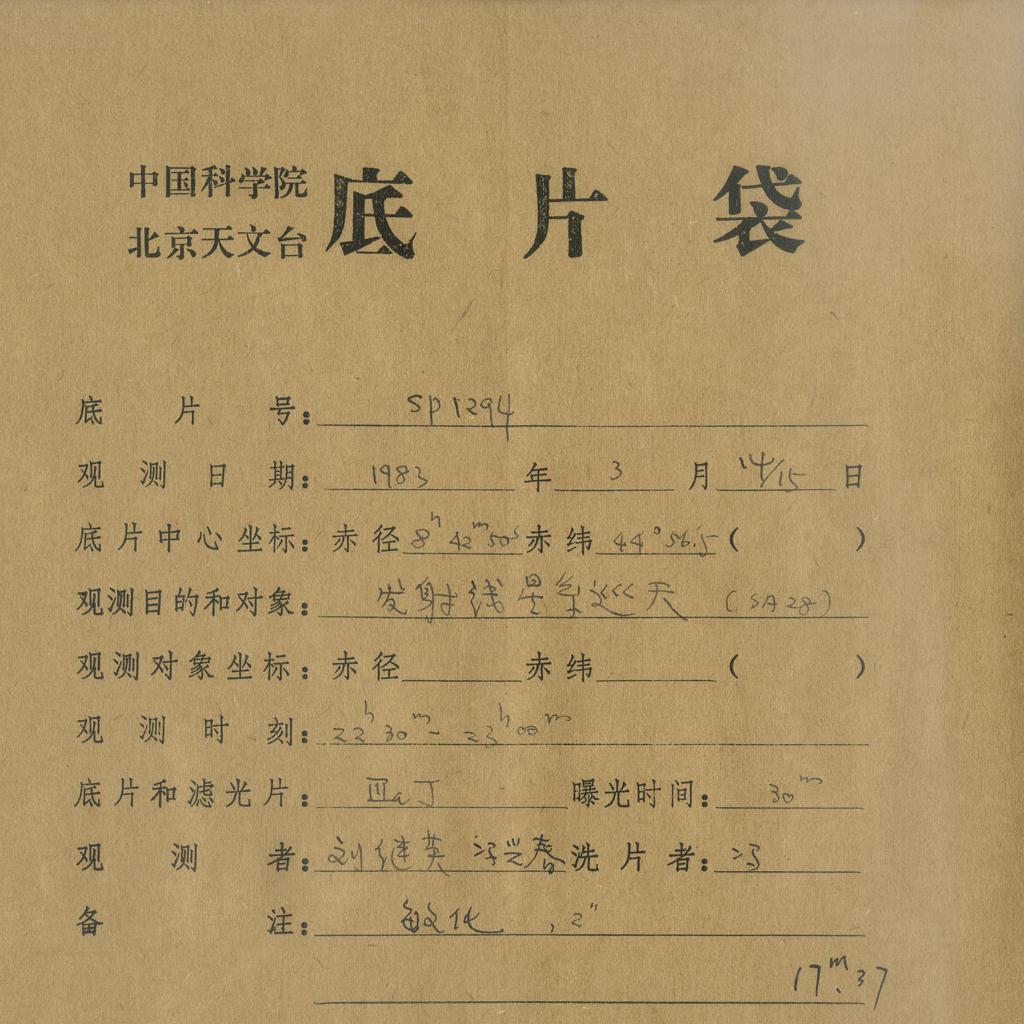 中国科学院
北京天文台 底片袋
底片号: SP1294
观测日期: 1983年3月14/15日
底片中心坐标: 赤径 8h 42m 50s 赤纬 44°56.5 ( )
观测目的和对象: 发射线星系巡天 (SA28)
观测对象坐标: 赤径 赤纬 ( )
观测时刻: 22h 30m - 23h 00m
底片和滤光片: ⅢaJ 曝光时间: 30m
观测者: 刘继英 冯兴春 洗片者: 冯
备注: 敏化 , 2"
17m.37